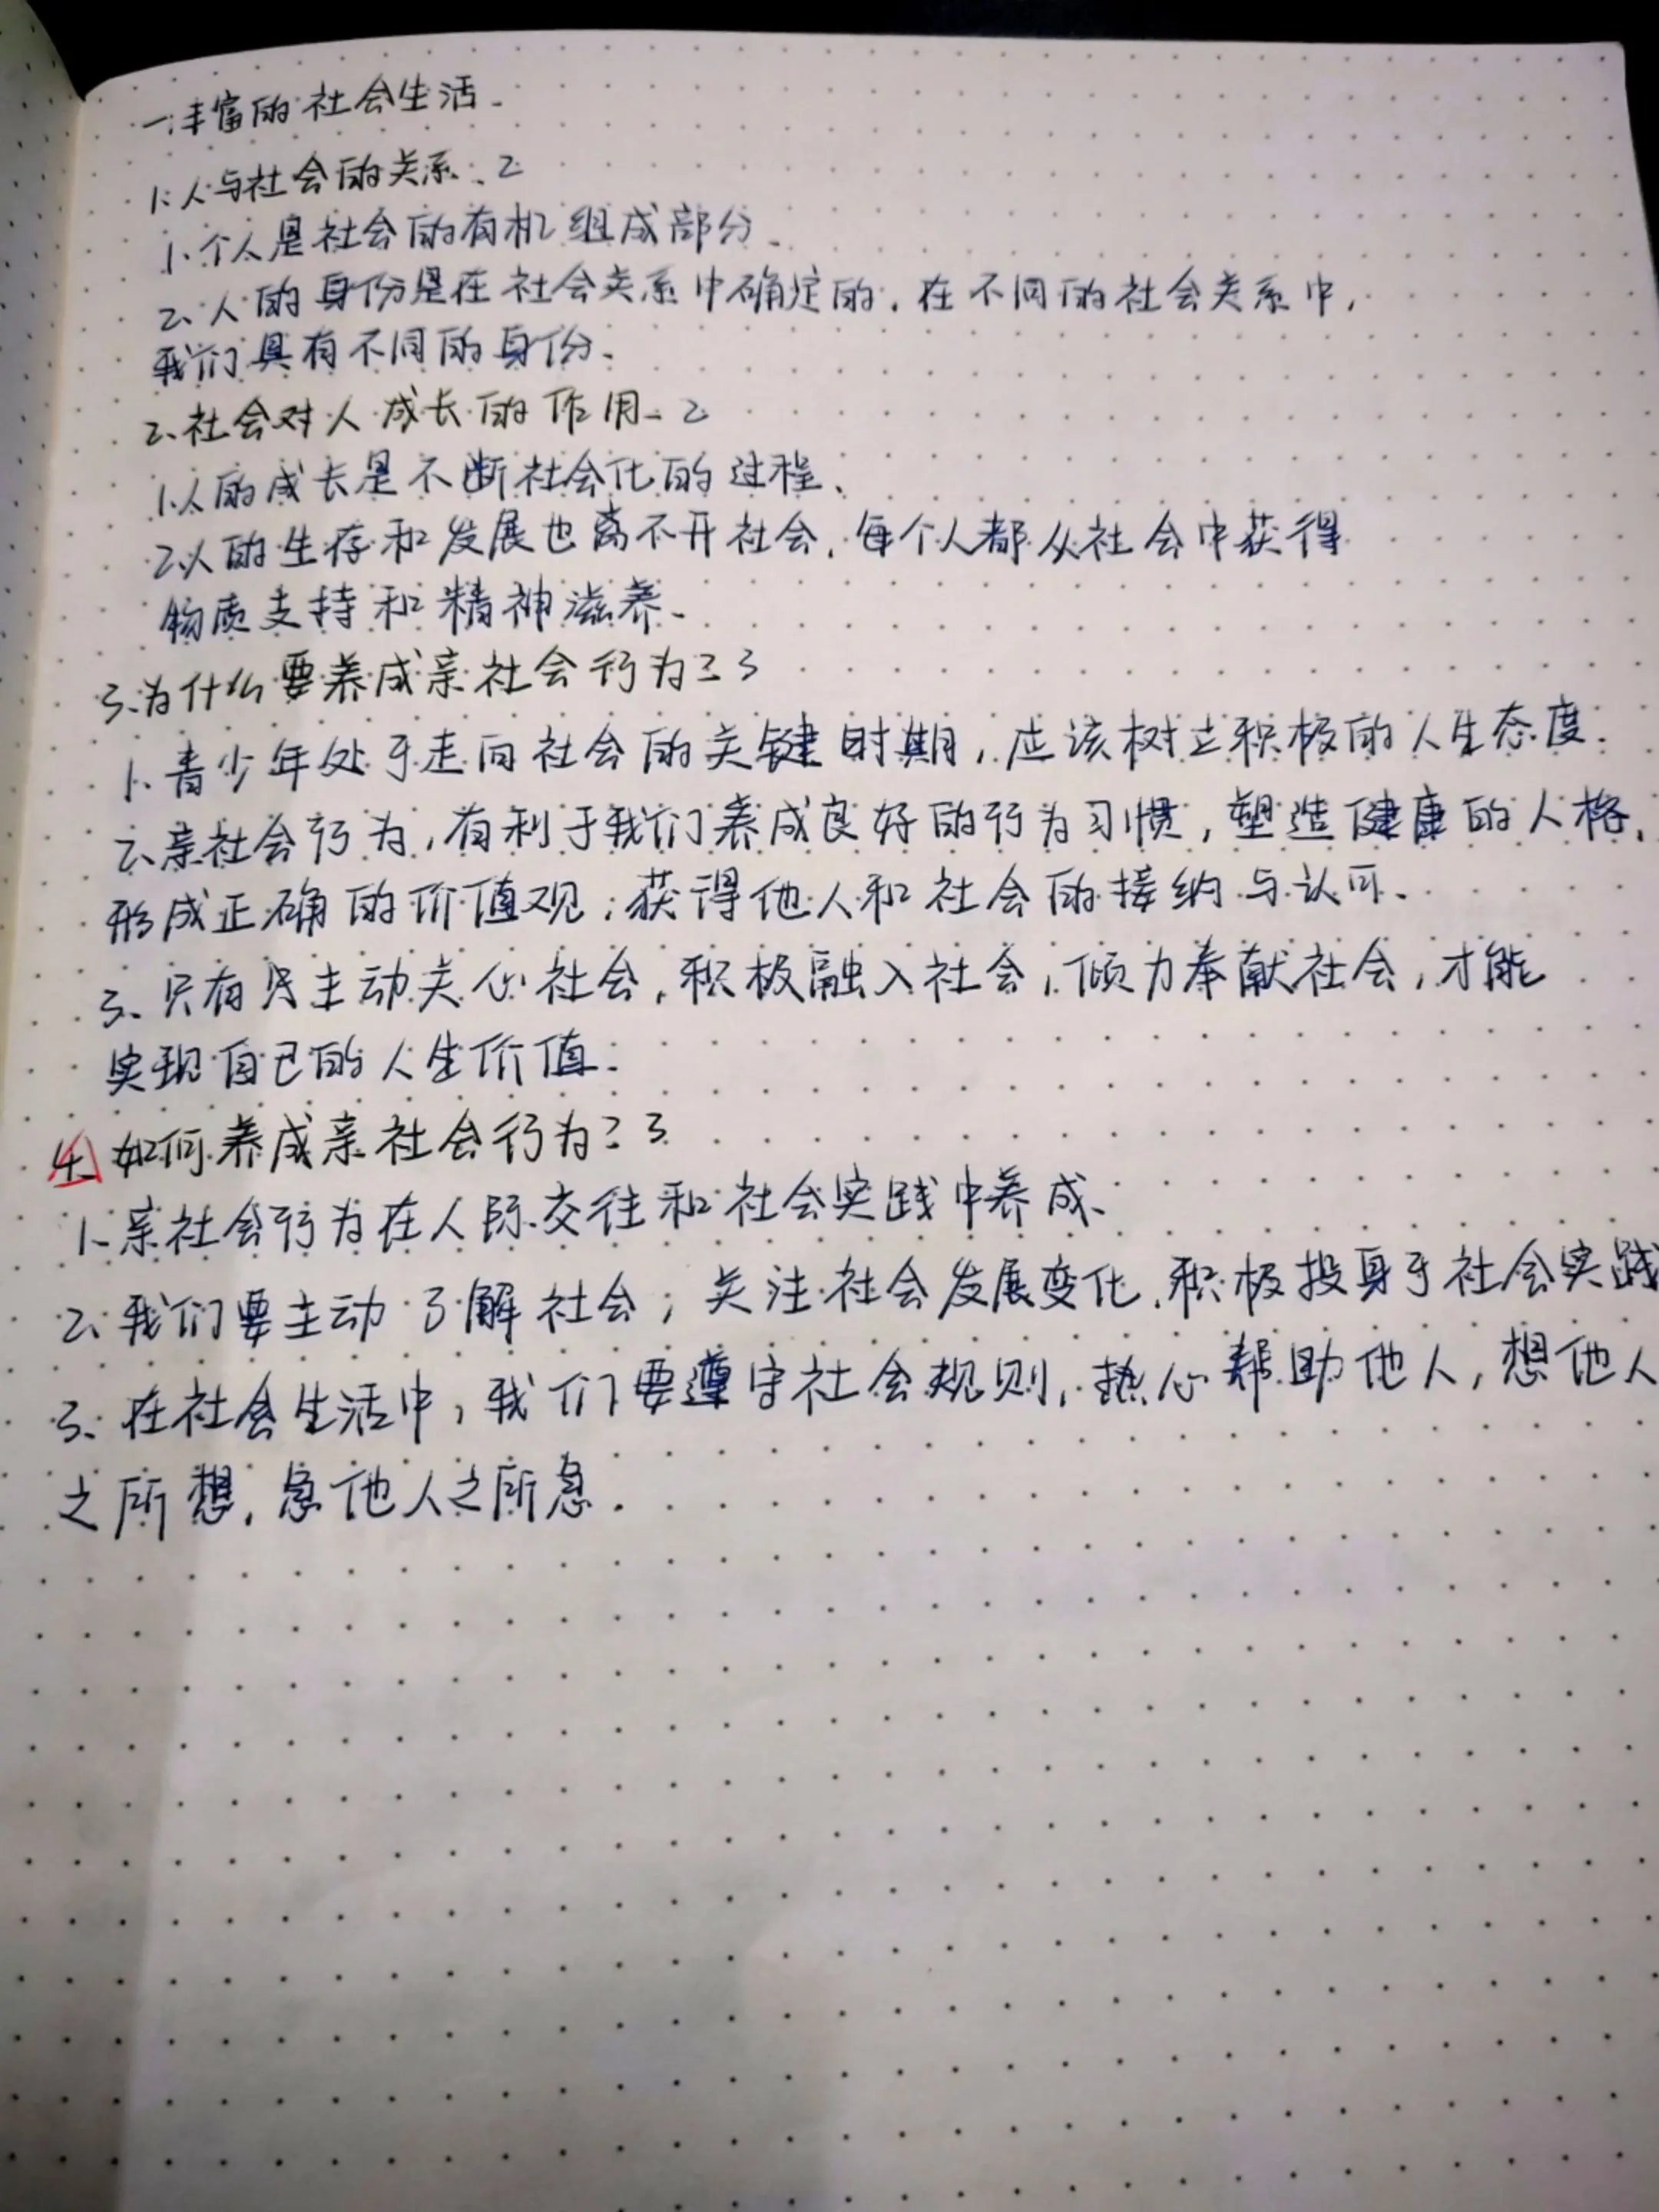 一.丰富的社会生活.
1.人与社会的关系.2
1.个人是社会的有机组成部分.
2.人的身份是在社会关系中确定的.在不同的社会关系中,
我们具有不同的身份.
2.社会对人成长的作用.2
1.人的成长是不断社会化的过程.
2.人的生存和发展也离不开社会.每个人都从社会中获得
物质支持和精神滋养.
3.为什么要养成亲社会行为?3
1.青少年处于走向社会的关键时期,应该树立积极的人生态度.
2.亲社会行为,有利于我们养成良好的行为习惯,塑造健康的人格,
形成正确的价值观;获得他人和社会的接纳与认可.
3.只有主动关心社会,积极融入社会,倾力奉献社会,才能
实现自己的人生价值.
4.如何养成亲社会行为?3
1.亲社会行为在人际交往和社会实践中养成.
2.我们要主动了解社会,关注社会发展变化,积极投身于社会实践
3.在社会生活中,我们要遵守社会规则,热心帮助他人,想他人
之所想,急他人之所急.